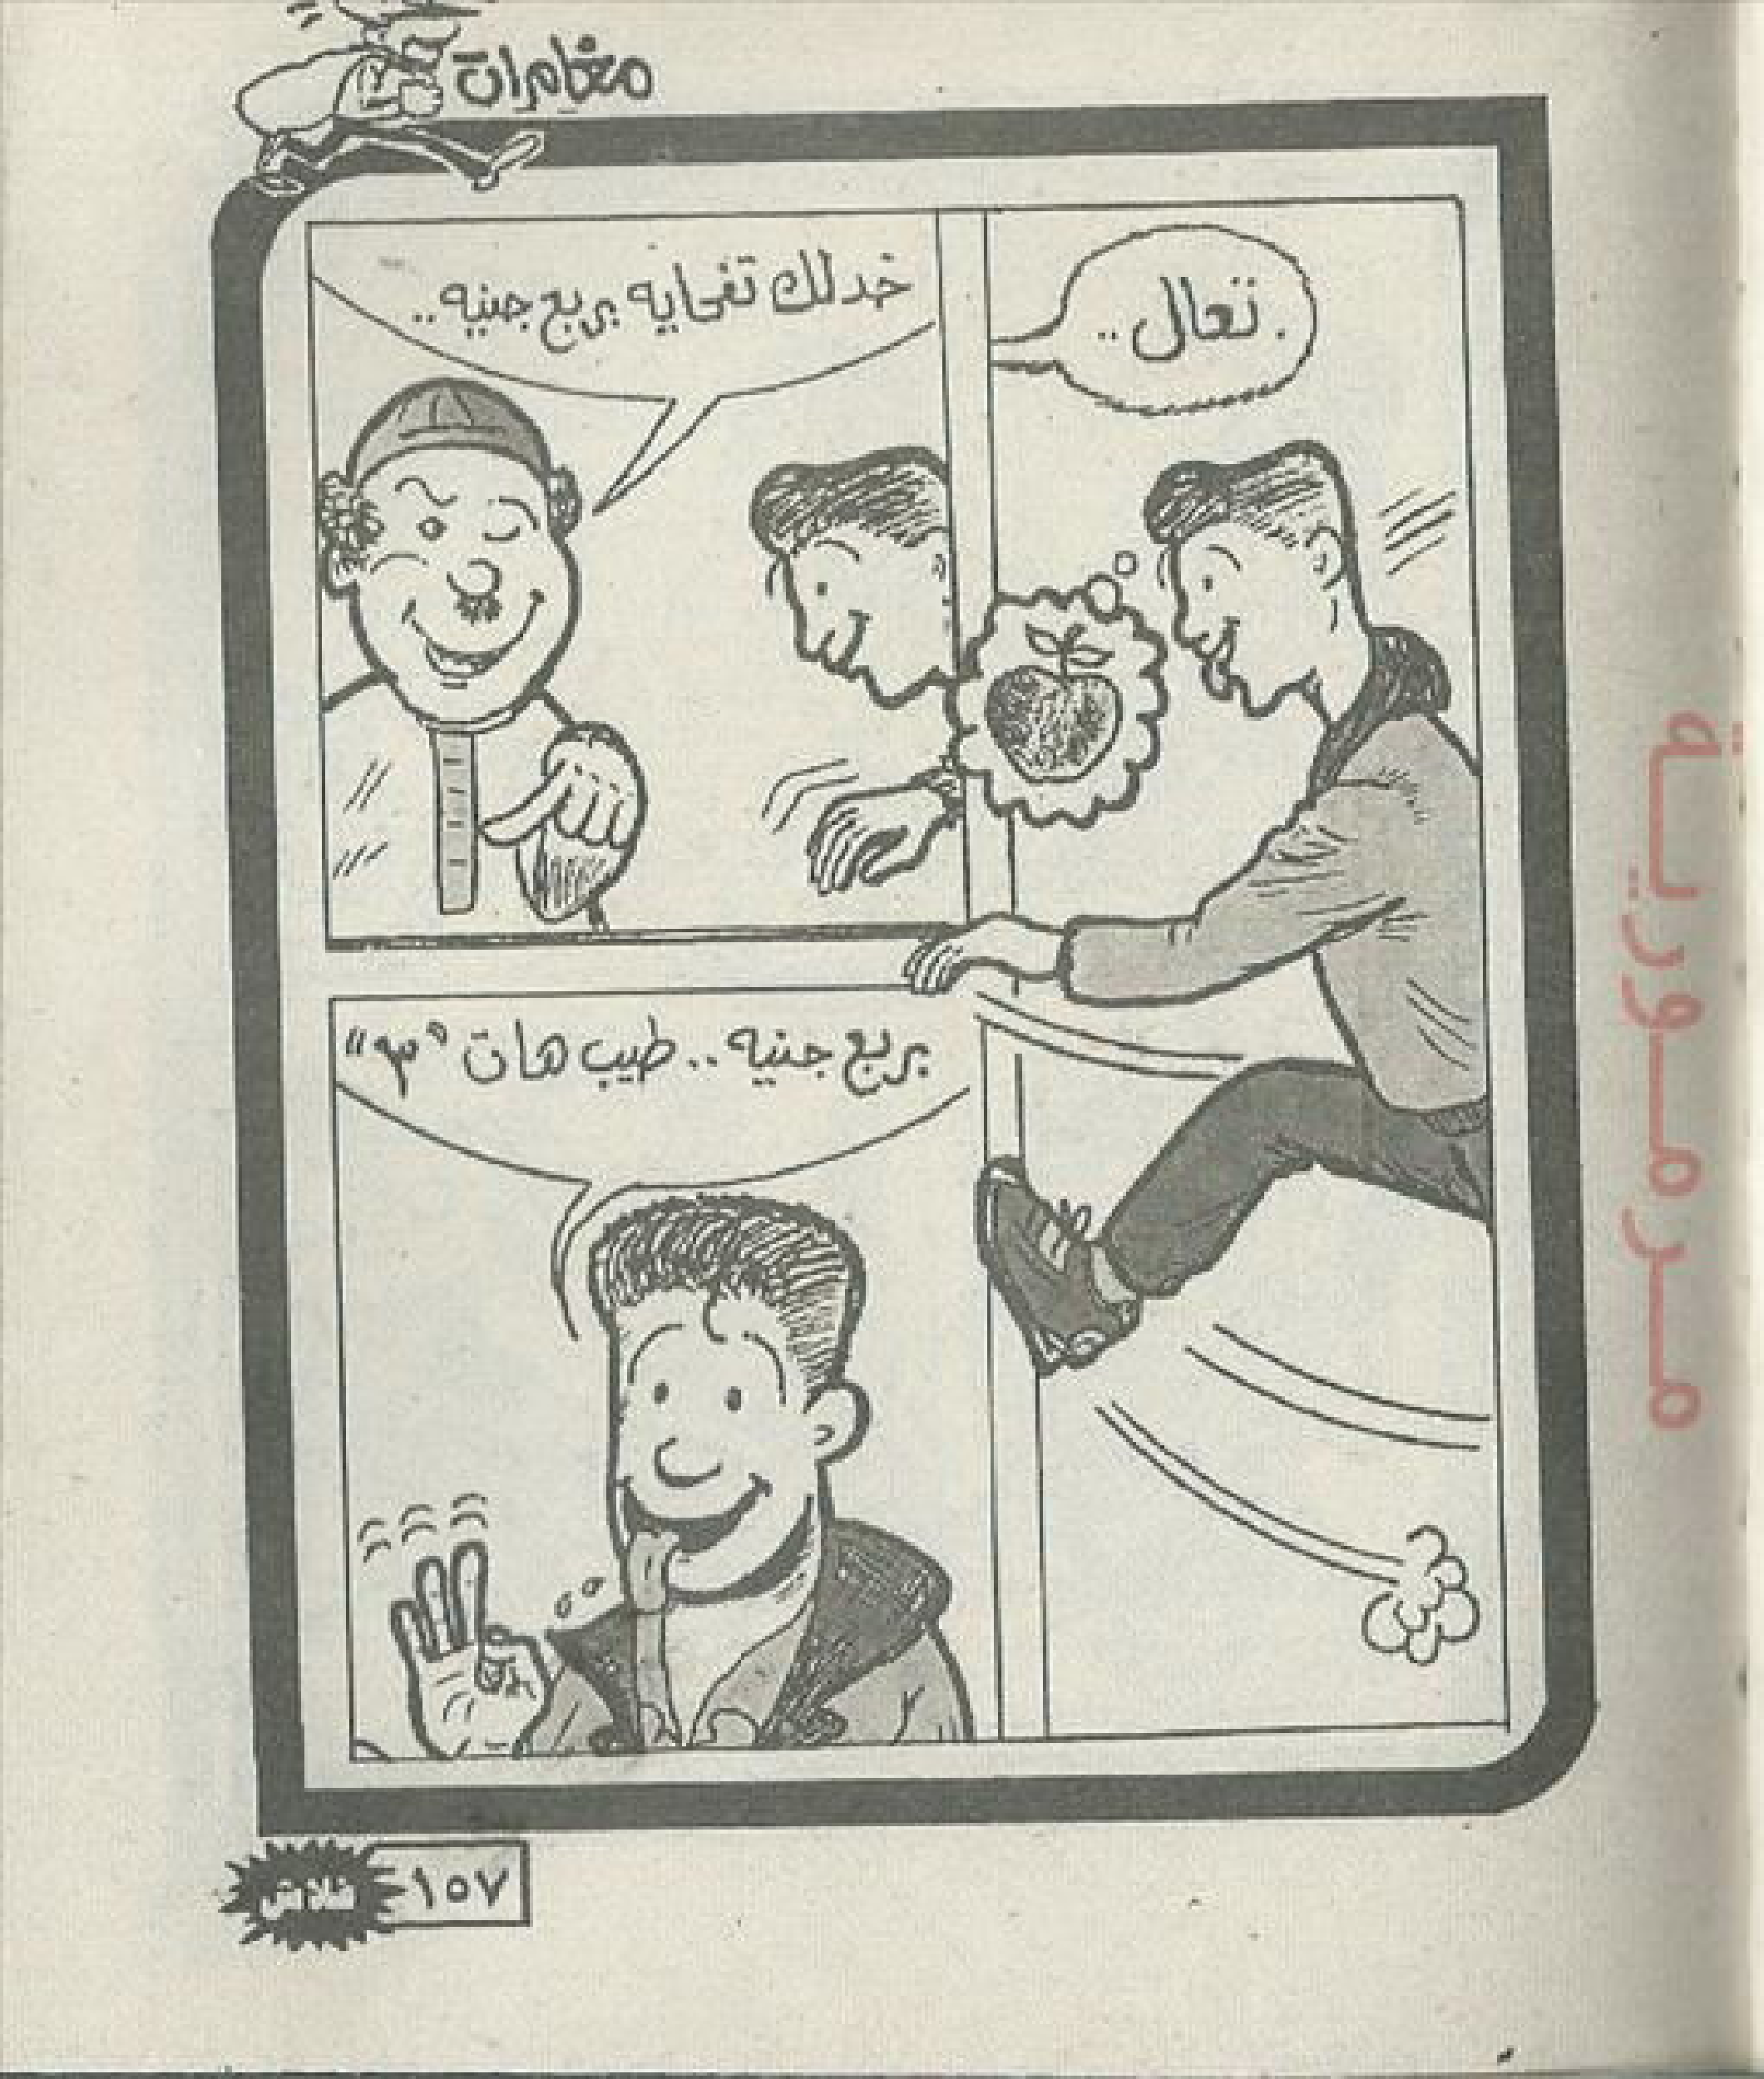 مغامرات
تعال ..
خد لك تفحايه بربع جنيه ..
بربع جنيه .. طيب هات "٣"
فلاش
١٥٧
مرمورية